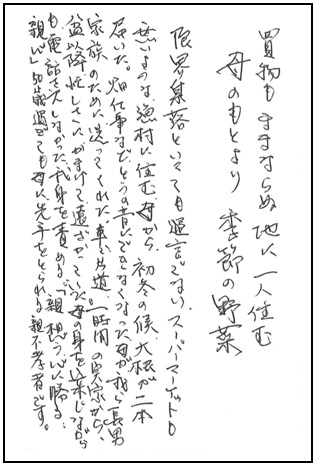 買物もままならぬ地に一人住む
母のもとより 季節の野菜
限界集落といっても過言でない、スーパーマーケットも
無いような漁村に住む母から、初冬の候、大根が二本
届いた。畑仕事などとうの昔にできなくなった母が我ら長男
家族のために送ってくれた。車で片道一時間の実家から、
盆以降忙しさにかまけて遠ざかっていた母の身を案じながら
も電話さえしなかった我身を責める。「親想うに勝る
親心」50歳過ぎても母に先手をとられる親不孝者です。